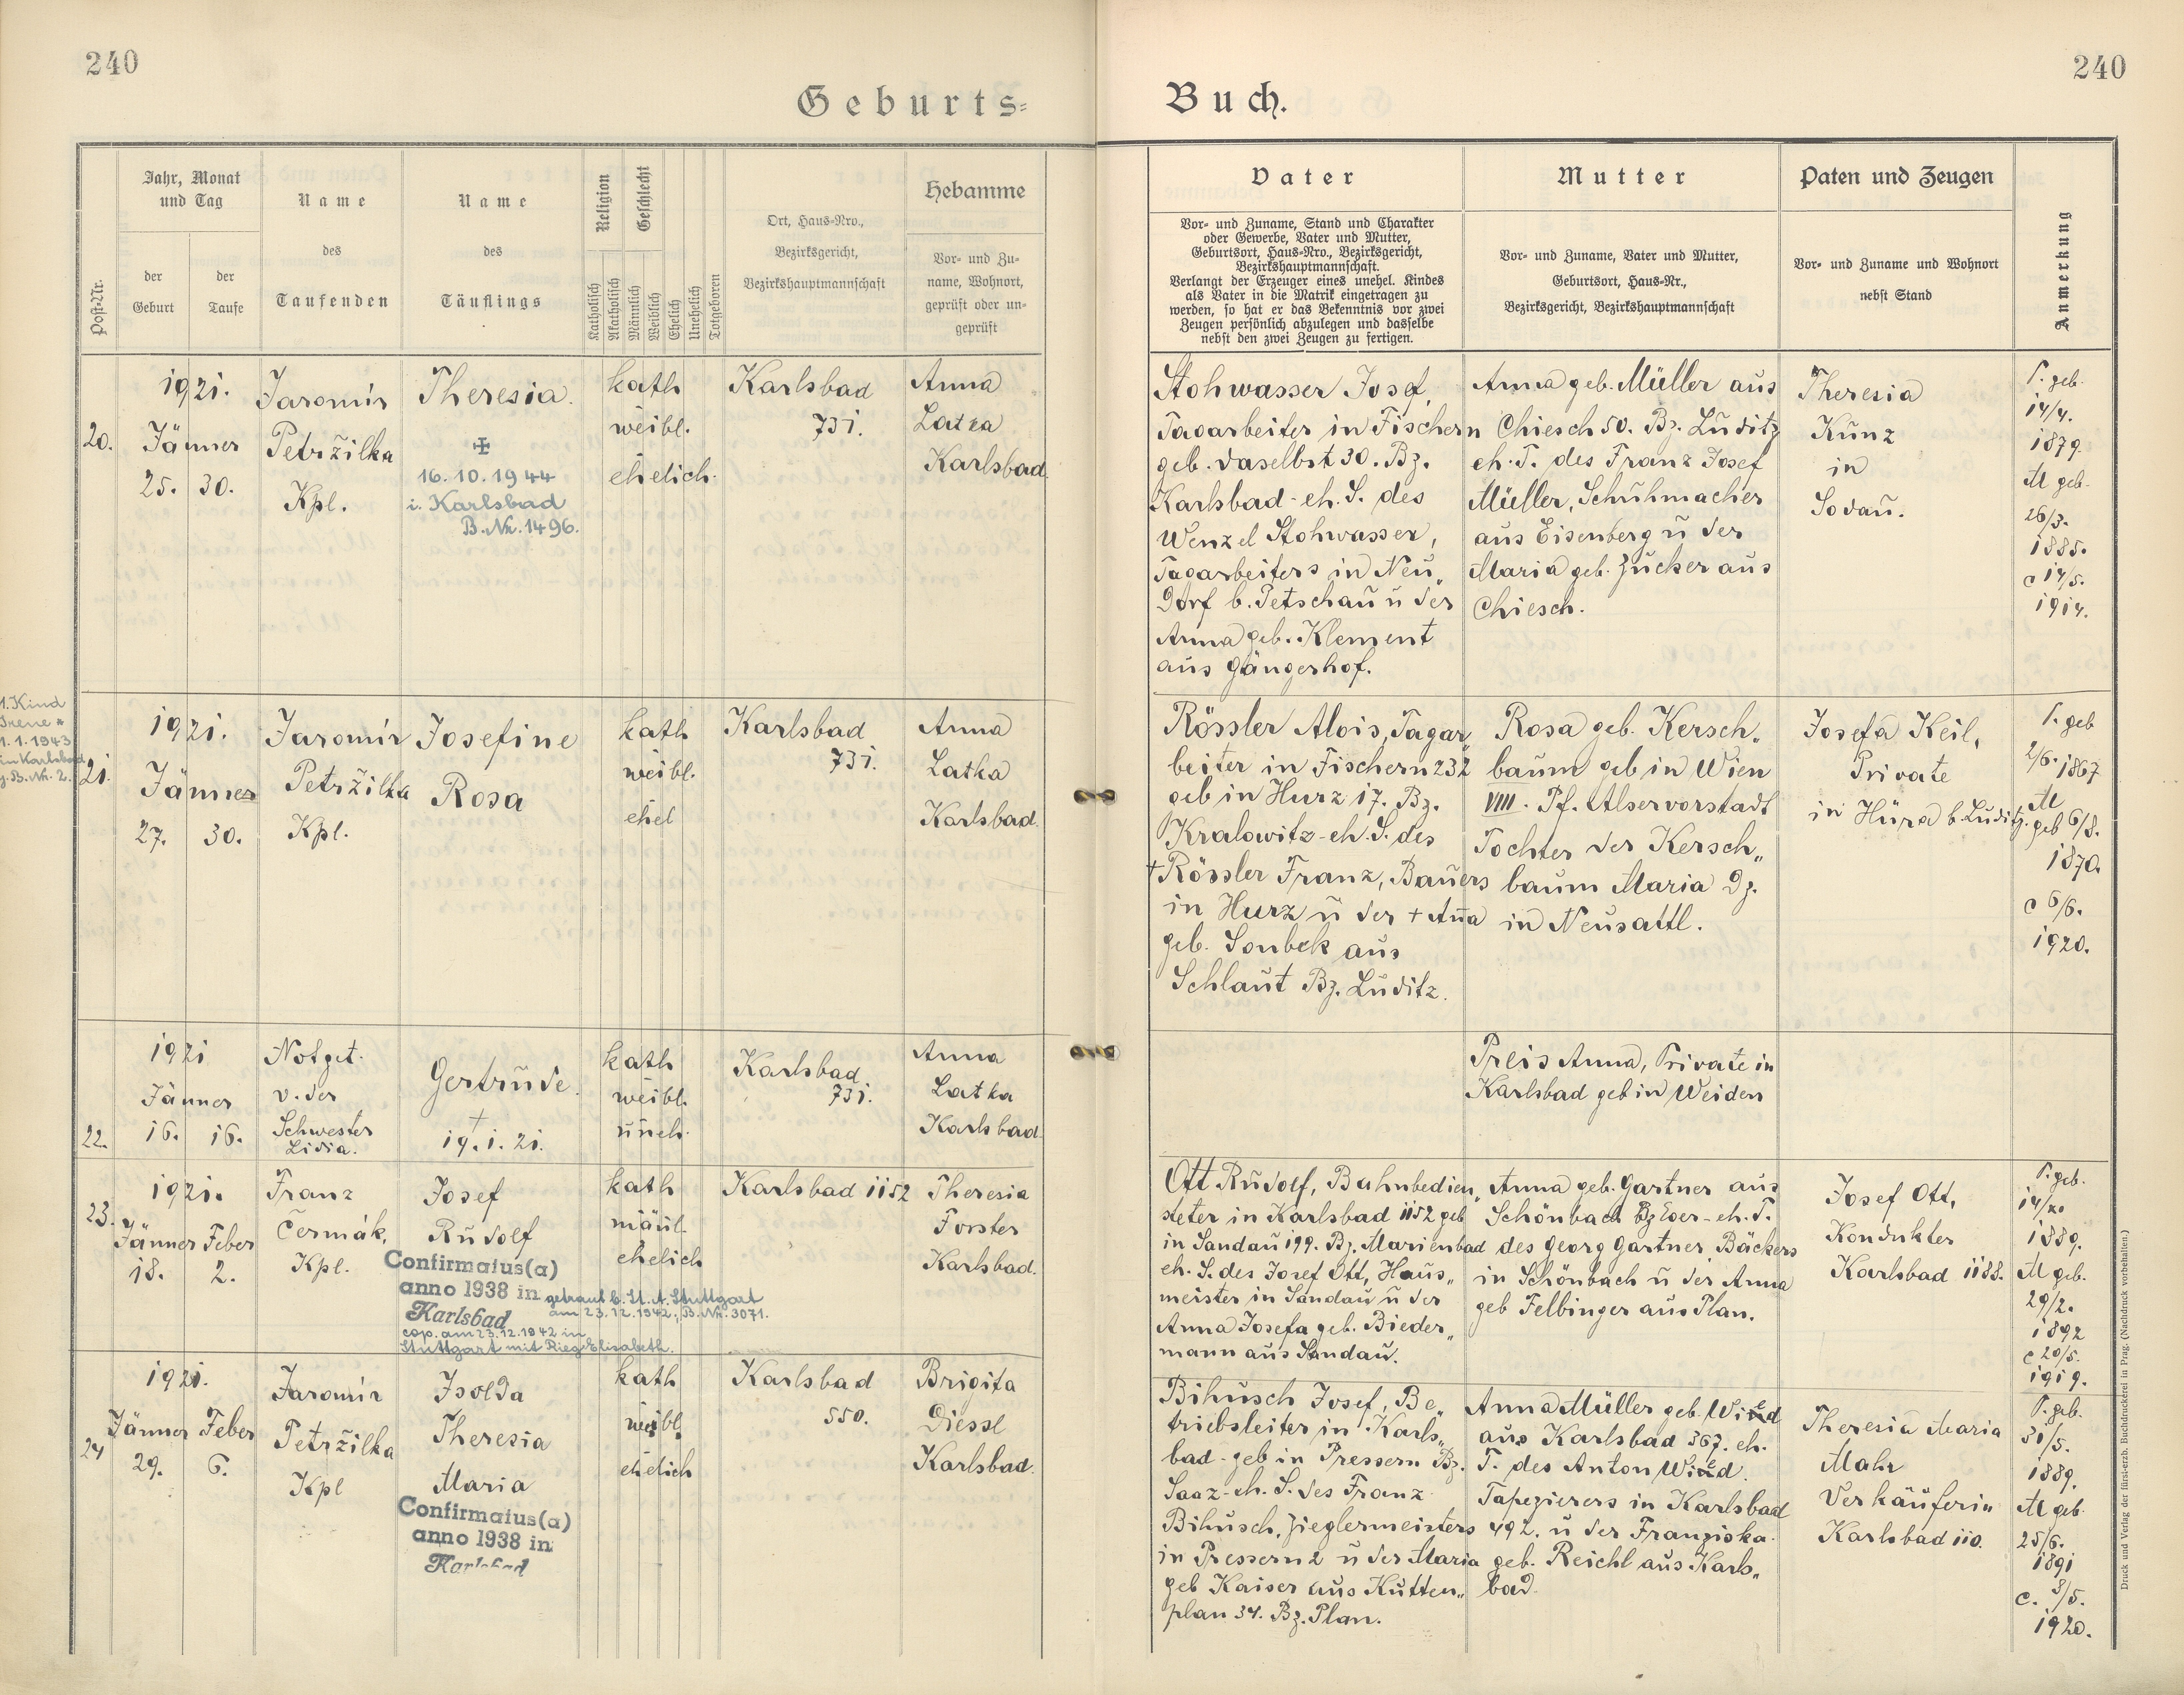 240
240
Geburts=
Buch.
Post-Nr.
Jahr, Monat
und Tag
der
Geburt
der
Taufe
Name
des
Taufenden
Name
des
Täuflings
Religion
Geschlecht
Katholisch
Akatholisch
Männlich
Weiblich
Ehelich
Unehelich
Totgeboren
Ort, Haus=Nro.,
Bezirksgericht,
Bezirkshauptmannschaft
Hebamme
Vor= und Zu=
name, Wohnort,
geprüft oder un=
geprüft
Vater
Vor= und Zuname, Stand und Charakter
oder Gewerbe, Vater und Mutter,
Geburtsort, Haus=Nro., Bezirksgericht,
Bezirkshauptmannschaft.
Verlangt der Erzeuger eines unehel. Kindes
als Vater in die Matrik eingetragen zu
werden, so hat er das Bekenntnis vor zwei
Zeugen persönlich abzulegen und dasselbe
nebst den zwei Zeugen zu fertigen.
Mutter
Vor= und Zuname, Vater und Mutter,
Geburtsort, Haus=Nr.,
Bezirksgericht, Bezirkshauptmannschaft
Paten und Zeugen
Vor= und Zuname und Wohnort
nebst Stand
Anmerkung
20.
1921.
Jänner
25. 30.
Jaromír
Petržilka
Kpl.
Theresia.
16.10.1944
i. Karlsbad
B.Nr. 1496.
kath
weibl.
ehelich.
Karlsbad
731.
Anna
Latka
Karlsbad
Stohwasser Josef,
Tagarbeiter in Fischern
geb. daselbst 30. Bz.
Karlsbad - eh. S. des
Wenzel Stohwasser,
Tagarbeiters in Neu„
dorf b. Petschau u der
Anna geb. Klement
aus Gängerhof.
Anna geb. Müller aus
Chiesch 50. Bz. Luditz
eh. T. des Franz Josef
Müller, Schuhmacher
aus Eisenberg u der
Maria geb. Zucker aus
Chiesch.
Theresia
Kunz
in
Sodau.
V. geb.
14/4.
1879.
M geb.
26/3.
1885.
c 14/5.
1914.
1. Kind
Irene *
1.1.1943
in Karlsbad
g. B. Nr. 2.
21.
1921.
Jänner
27. 30.
Jaromír
Petržilka
Kpl.
Josefine
Rosa
kath
weibl.
ehel
Karlsbad
731.
Anna
Latka
Karlsbad.
Rössler Alois, Tagar„
beiter in Fischern 232
geb in Hurz 17. Bz.
Kralowitz - eh. S. des
† Rössler Franz, Bauers
in Hurz u der † Anna
geb. Sonbek aus
Schlaut Bz. Luditz.
Rosa geb. Kersch„
baum geb in Wien
VIII. Pf. Alservorstadt
Tochter der Kersch„
baum Maria Dz.
in Neusattl.
Josefa Keil,
Private
in Hüra b. Luditz.
V. geb
2/6. 1867
M
geb 6/8.
1870.
c 6/6.
1920.
22.
1921
Jänner
16. 16.
Notget.
v. der
Schwester
Lidia.
Gertrude.
†
19.1.21.
kath
weibl.
uneh.
Karlsbad
731.
Anna
Latka
Karlsbad.
Preis Anna, Private in
Karlsbad geb in Weiden
23.
1921.
Jänner Feber
18. 2.
Franz
Čermák,
Kpl.
Josef
Rudolf
Confirmatus(a)
anno 1938 in
Karlsbad
getraut b. St. A. Stuttgart
am 23.12.1942, B. Nr. 3071.
cop. am 23.12.1942 in
Stuttgart mit Rieg Elisabeth.
kath
mänl.
ehelich
Karlsbad 1152
Theresia
Forster
Karlsbad.
Ott Rudolf, Bahnbedien„
steter in Karlsbad 1152 geb
in Sandau 199. Bz. Marienbad
eh. S. des Josef Ott, Haus„
meister in Sandau u der
Anna Josefa geb. Bieder„
mann aus Sandau.
Anna geb. Gartner aus
Schönbach Bz Eger - eh. T.
des Georg Gartner Bäckers
in Schönbach u der Anna
geb Felbinger aus Plan.
Josef Ott,
Kondukter
Karlsbad 1188.
V. geb.
1889.
M geb.
29/2.
1892
c 20/5.
1919.
24
1921.
Jänner Feber
29. 6.
Jaromír
Petržilka
Kpl
Isolda
Theresia
Maria
Confirmatus(a)
anno 1938 in
Karlsbad
kath
weibl.
ehelich
Karlsbad
550.
Brigita
Diessl
Karlsbad.
Bihusch Josef, Be„
triebsleiter in Karls„
bad - geb in Pressern Bz.
Saaz - eh. S. des Franz
Bihusch, Zieglermeisters
in Pressern 2 u der Maria
geb Kaiser aus Kutten„
plan 34. Bz. Plan.
Anna Müller geb.
aus Karlsbad 367. eh.
T. des Anton
Tapezierers in Karlsbad
492. u der Franziska
geb. Reichl aus Karls„
bad.
Theresia Maria
Mahr
Verkäuferin
Karlsbad 110.
V. geb.
31/5.
1889.
M geb.
25/6.
1891
c. 8/5.
1920.
Druck und Verlag der fürst-erzb. Buchdruckerei in Prag. (Nachdruck vorbehalten.)